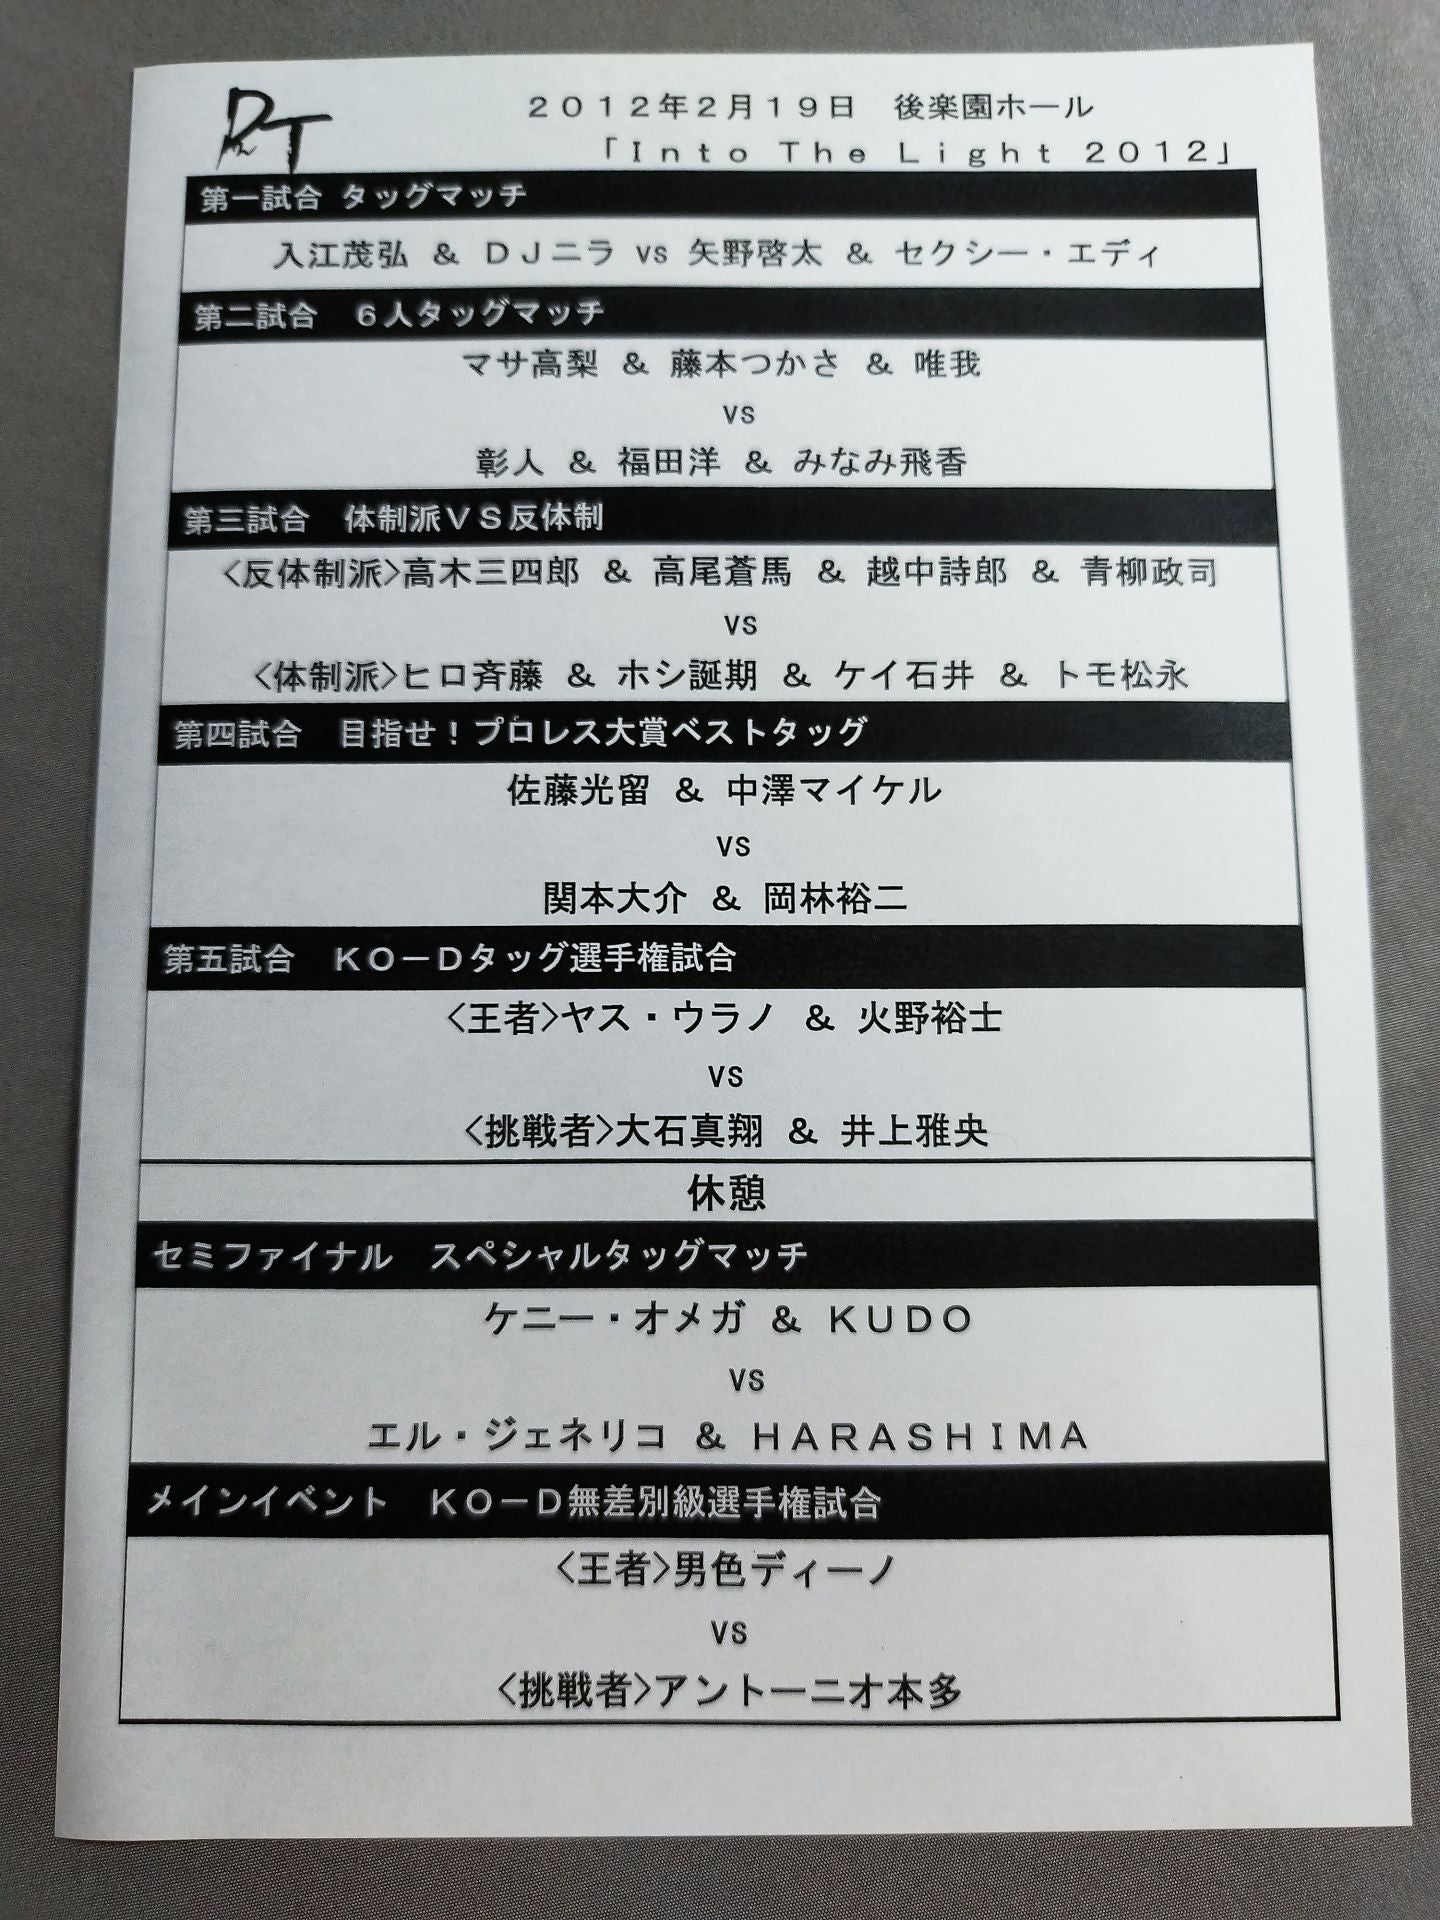 DDT
2012年2月19日　後楽園ホール
「Into The Light 2012」
第一試合 タッグマッチ
入江茂弘 & DJニラ vs 矢野啓太 & セクシー・エディ
第二試合　6人タッグマッチ
マサ高梨 & 藤本つかさ & 唯我
vs
彰人 & 福田洋 & みなみ飛香
第三試合　体制派VS反体制
<反体制派>高木三四郎 & 高尾蒼馬 & 越中詩郎 & 青柳政司
vs
<体制派>ヒロ斉藤 & ホシ誕期 & ケイ石井 & トモ松永
第四試合　目指せ！プロレス大賞ベストタッグ
佐藤光留 & 中澤マイケル
vs
関本大介 & 岡林裕二
第五試合　KO－Dタッグ選手権試合
<王者>ヤス・ウラノ & 火野裕士
vs
<挑戦者>大石真翔 & 井上雅央
休憩
セミファイナル　スペシャルタッグマッチ
ケニー・オメガ & KUDO
vs
エル・ジェネリコ & HARASHIMA
メインイベント　KO－D無差別級選手権試合
<王者>男色ディーノ
vs
<挑戦者>アントーニオ本多